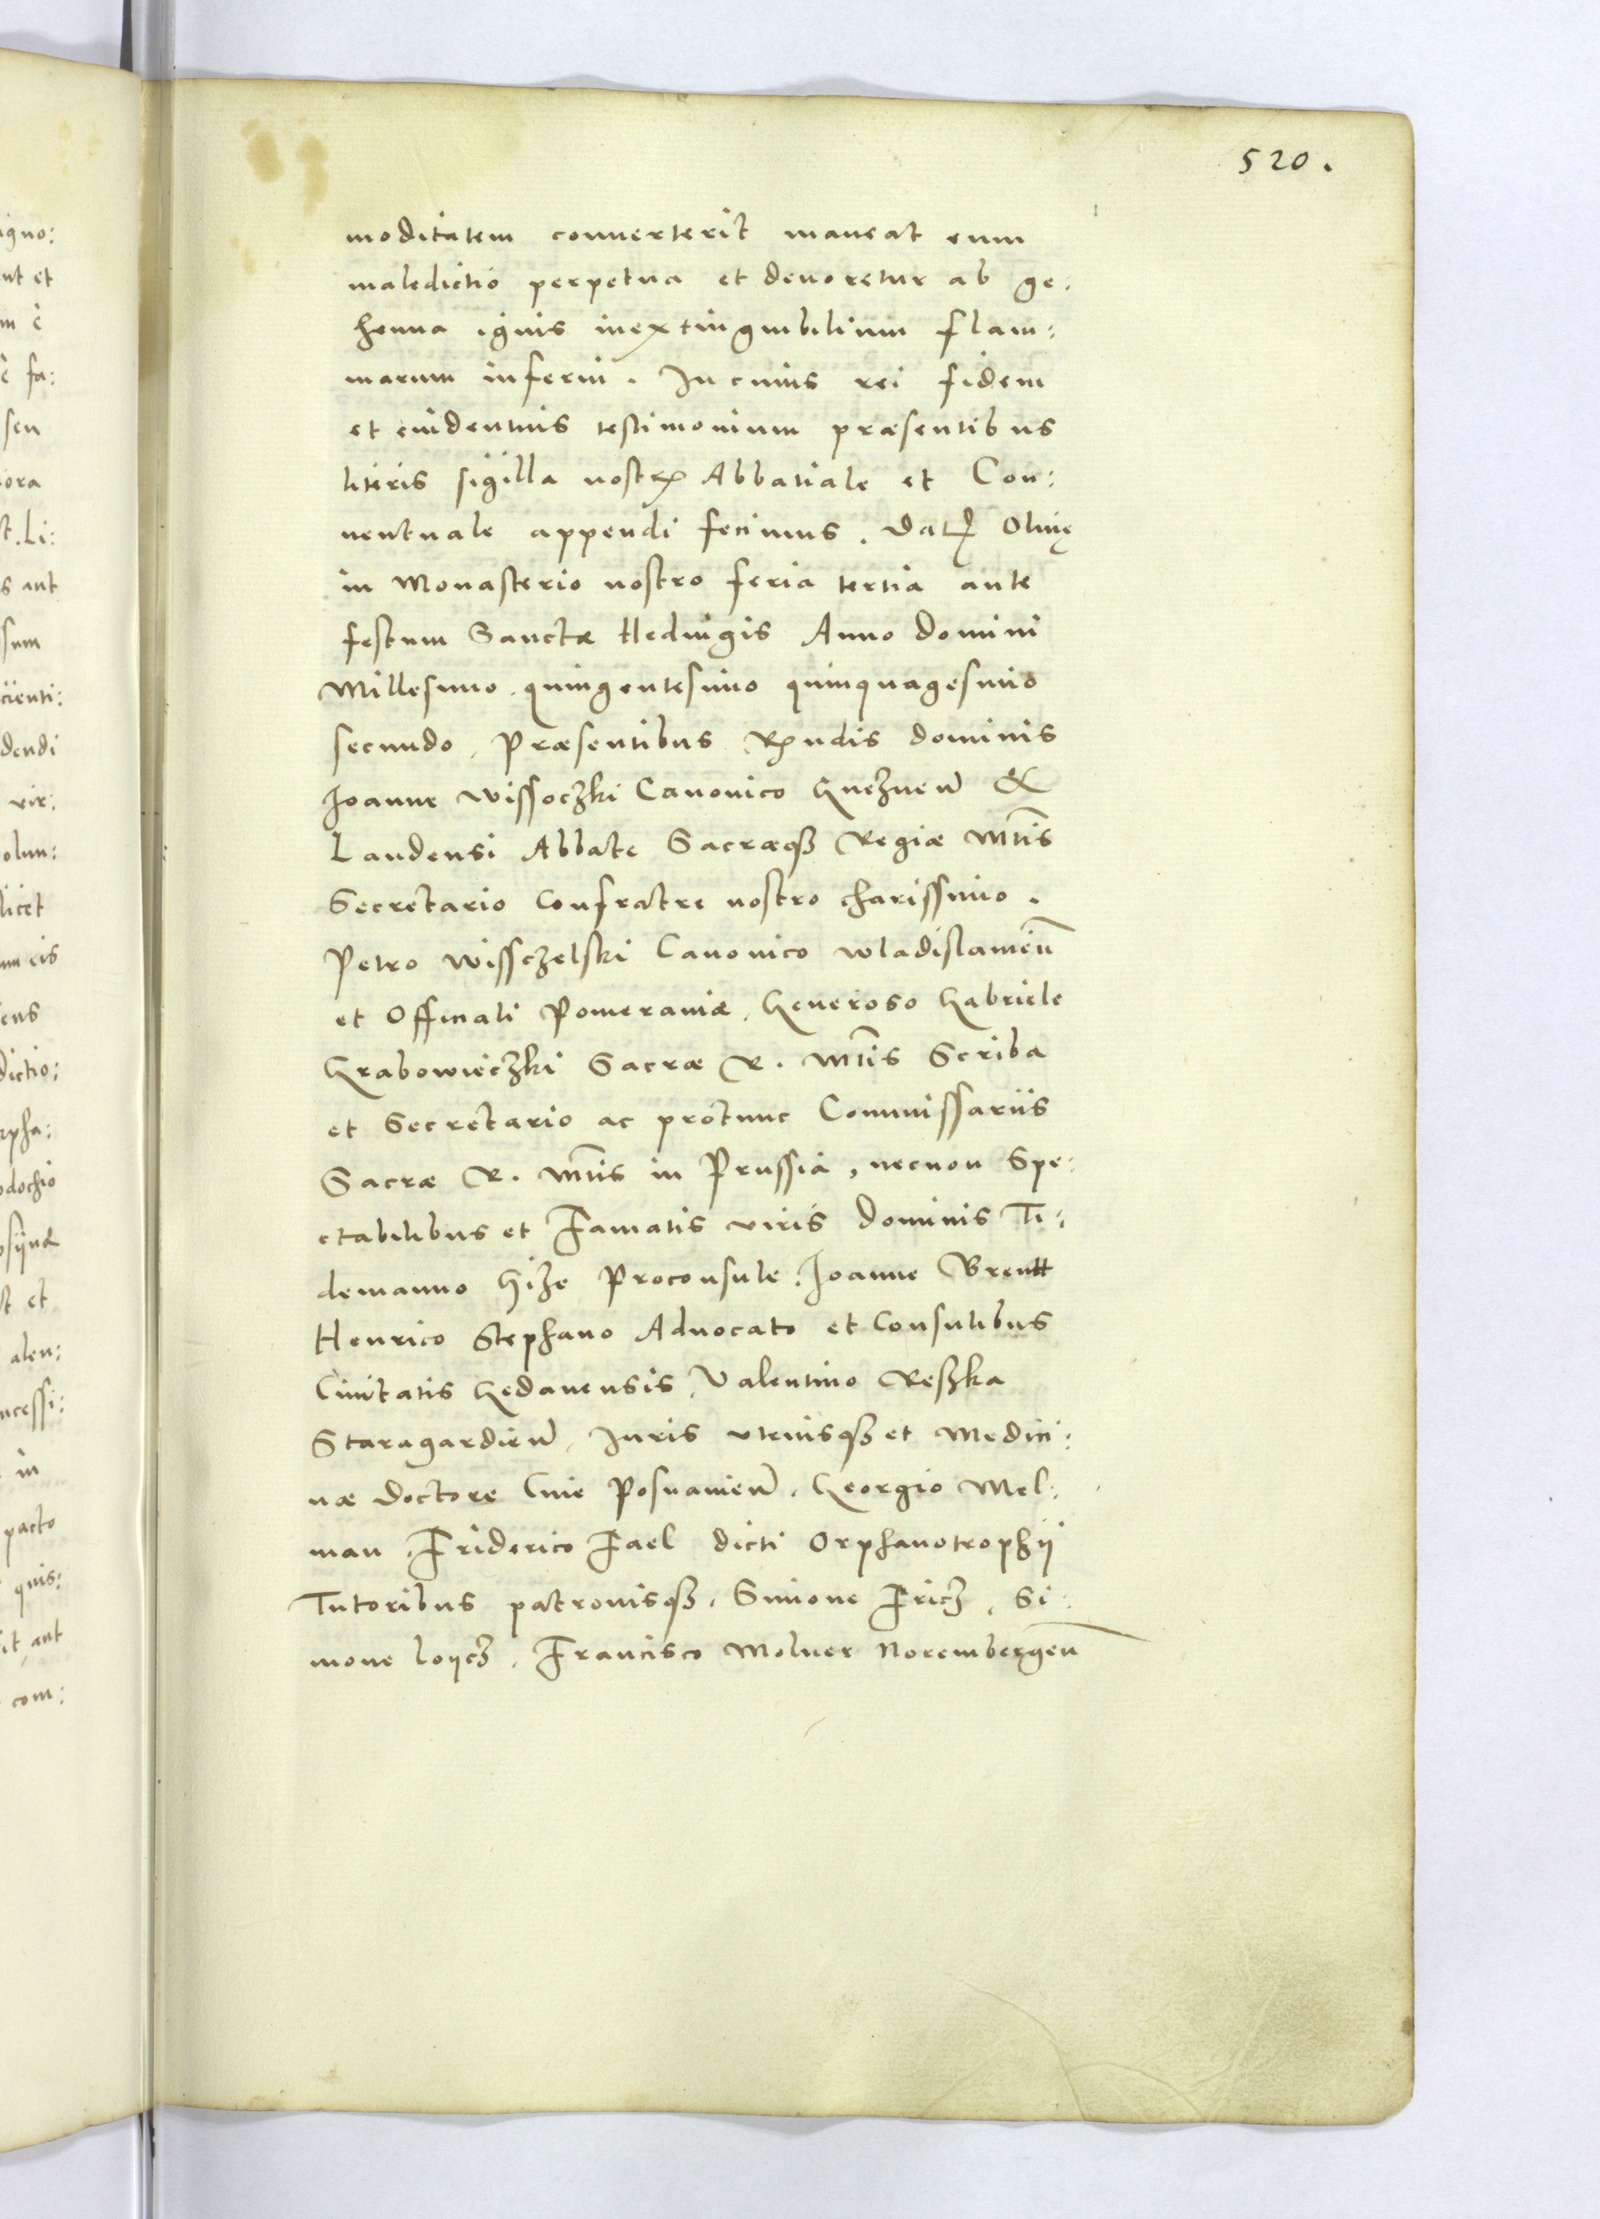 520.
moditatem conuerterit maneat eum
maledictio perpetua et deuoretur ab ge:
henna ignis inextinguibilium flam:
marum inferni. In cuius rei fidem
et euidentius testimonium præsentibus
literis sigilla nostrꝝ Abbatiale et Con:
uentuale appendi fecimus. Datꝭ Oliuę
in Monasterio nostro feria tertia ante
festum Sanctæ Hedwigis Anno Domini
Millesimo quingentesimo quinquagesimo
secundo. Præsentibus Rꝓndis dominis
Joanne Wissoczki Canonico Gneznen̄ &
Landensi Abbate Sacræqꝫ Regiæ Mtis
Secretario Confratre nostro charissimo.
Petro Wissczelski Canonico Wladislauien̄
et Officiali Pomeraniæ, Generoso Gabriele
Grabowieczki Sacræ R. Mtis Scriba
et Secretario ac protunc Commissariis
Sacræ R. Mtis in Prussia, necnon Spe:
ctabilibus et Famatis viris Dominis Ti:
demanno Gize Proconsule, Joanne Brentt
Henrico Stephano Aduocato et Consulibus
Ciuitatis Gedanensis, Valentino Reszka
Staragardien̄, Iuris vtriusqꝫ et Medici:
næ Doctore Ciue Posnanien̄, Georgio Mel:
man, Friderico Fael dicti Orphanotrophij
Tutoribus patronisqꝫ, Simone Fricz, Si:
mone Loycz, Francisco Molner Norembergen̄